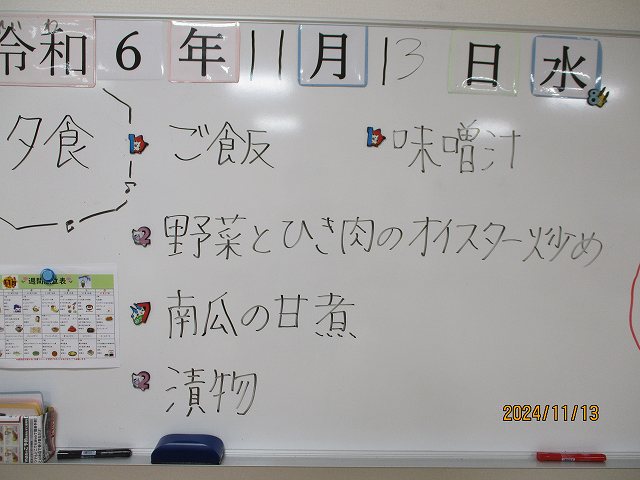 令和 6 年 11 月 13 日 水
夕食
ご飯 味噌汁
野菜とひき肉のオイスター炒め
南瓜の甘煮
漬物
2024/11/13